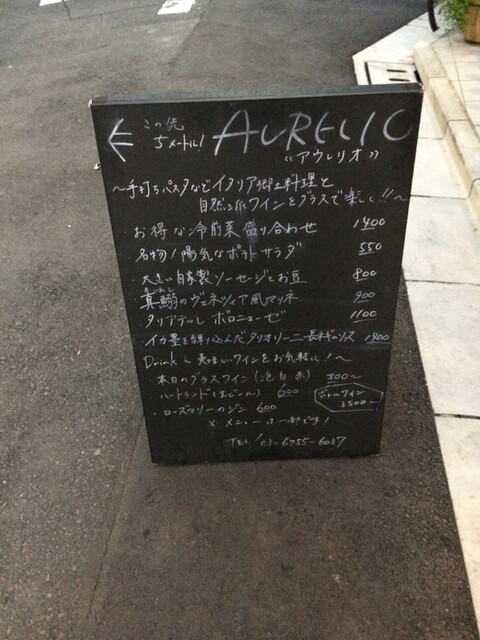 ← この先 5メートル! AURELIO
“アウレリオ”
〜手打ちパスタなどイタリア郷土料理と
自然派ワインをグラスで楽しく!!〜
・お得な冷前菜盛り合わせ 1400
名物!陽気なポテトサラダ 550
・大きい自家製ソーセージとお豆 800
真鰯のヴェネツィア風マリネ 900
タリアテッレ ボロニェーゼ 1100
イカ墨を練り込んだタリオリーニ 1400
Drink 〜美味しいワインをお気軽に!〜
本日のグラスワイン(泡白赤) 500〜
ハートランド(生ビール) 600
ボトルワイン 3500〜
・ローズマリーのジン 600
※メニューは一部です!
TEL/03-6755-6037